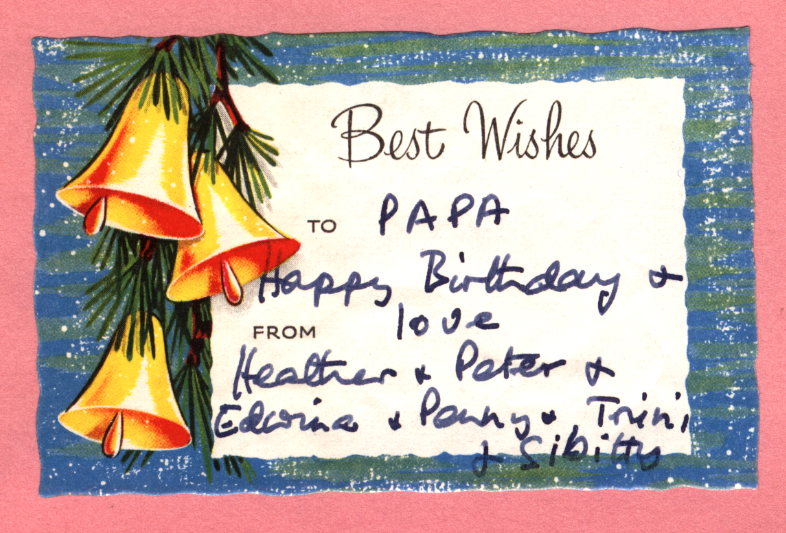 Best Wishes
TO PAPA
Happy Birthday &
love
FROM
Heather & Peter &
Edwina & Penny &, Trini
& Sibitty